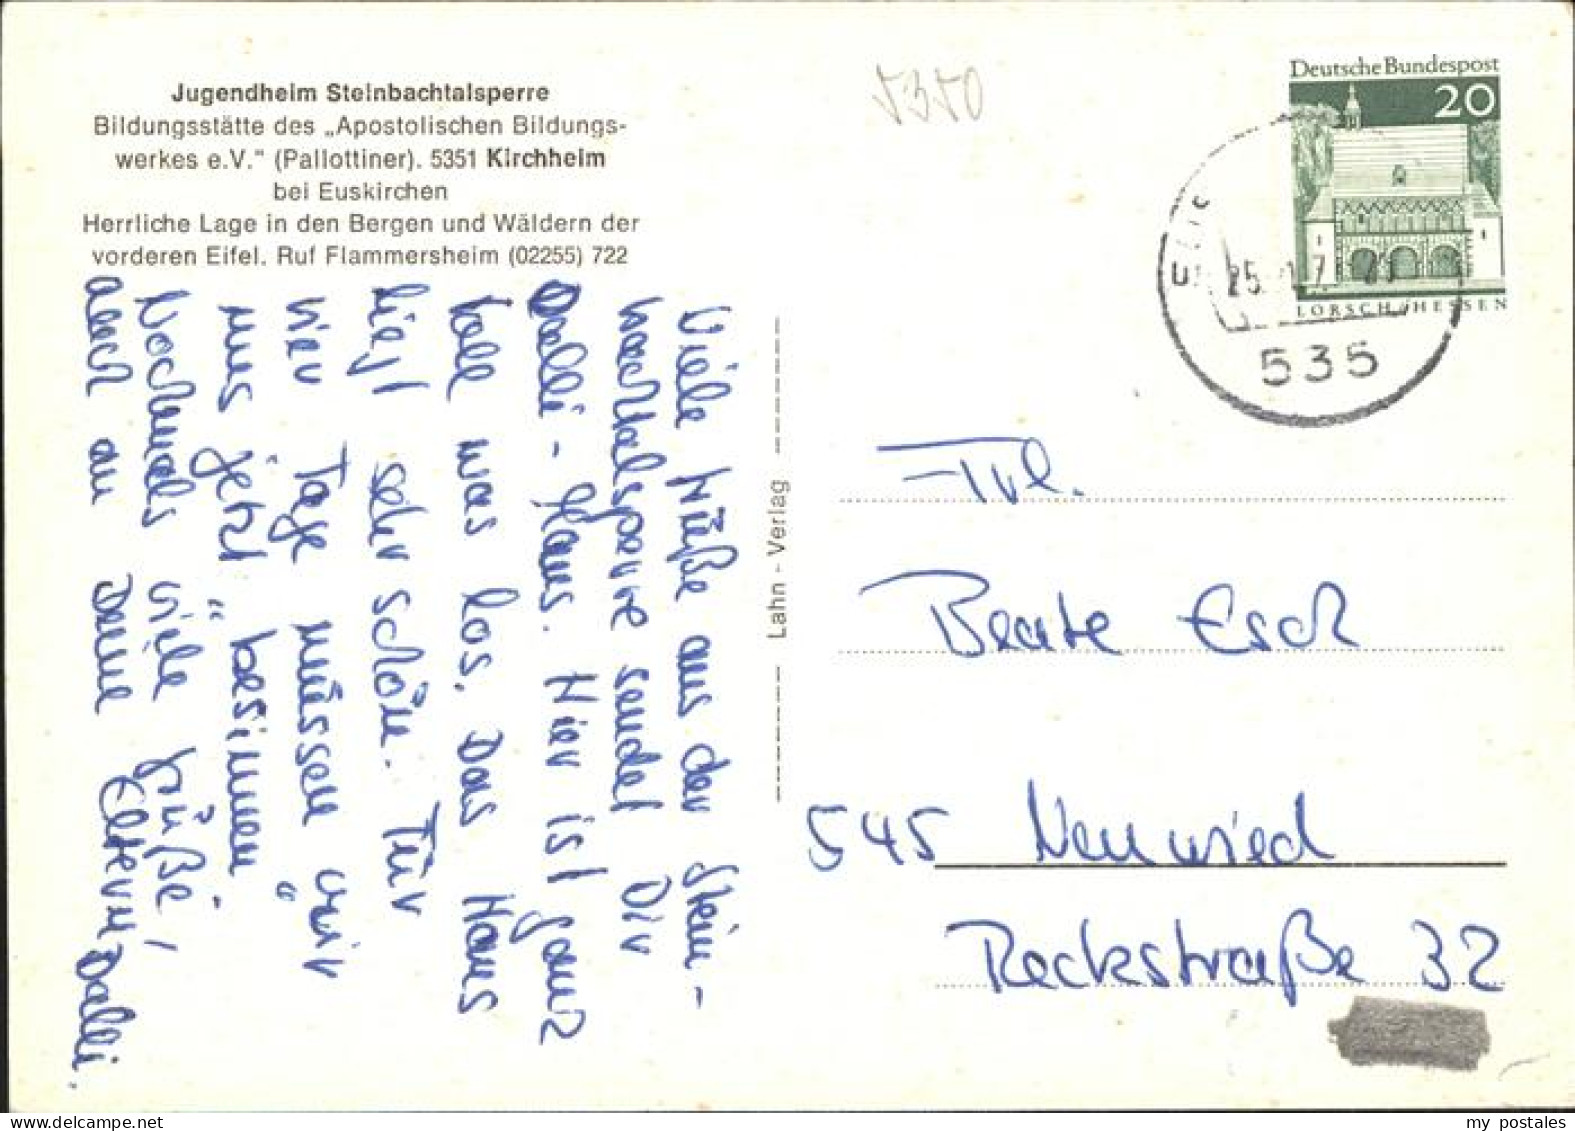 Jugendheim Steinbachtalsperre
Bildungsstätte des „Apostolischen Bildungs-
werkes e.V." (Pallottiner). 5351 Kirchheim
bei Euskirchen
Herrliche Lage in den Bergen und Wäldern der
vorderen Eifel. Ruf Flammersheim (02255) 722
Viele Grüße aus der Stein-
bachtalsperre sendet Dir
Dalli-Haus. Hier ist ganz
toll was los. Das Haus
liegt sehr schön. Für
vier Tage müssen wir
uns jetzt "besinnen"
Nochmals viele Grüße,
auch an Deine Eltern
Dalli.
Lahn - Verlag
5350
Deutsche Bundespost
20
LORSCH/HESSEN
25.
535
Frl.
Beate Esch
545 Neuwied
Reckstraße 32
my postales